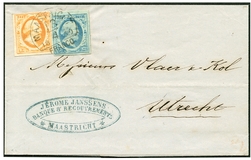 Messieurs Vlaer & Kol
Utrecht
JEROME JANSSENS
BANQUE & RECOUVREMENT
MAASTRICHT